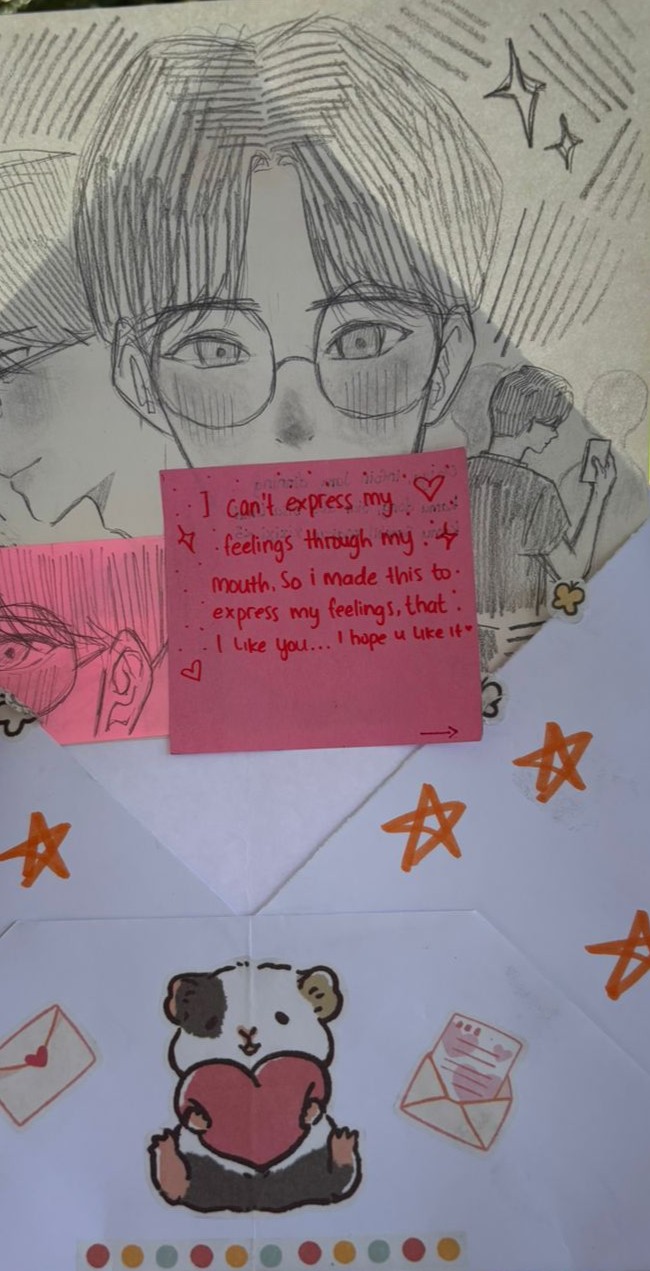 I can't express my
feelings through my
mouth. So i made this to
express my feelings, that
I like you... I hope u like it